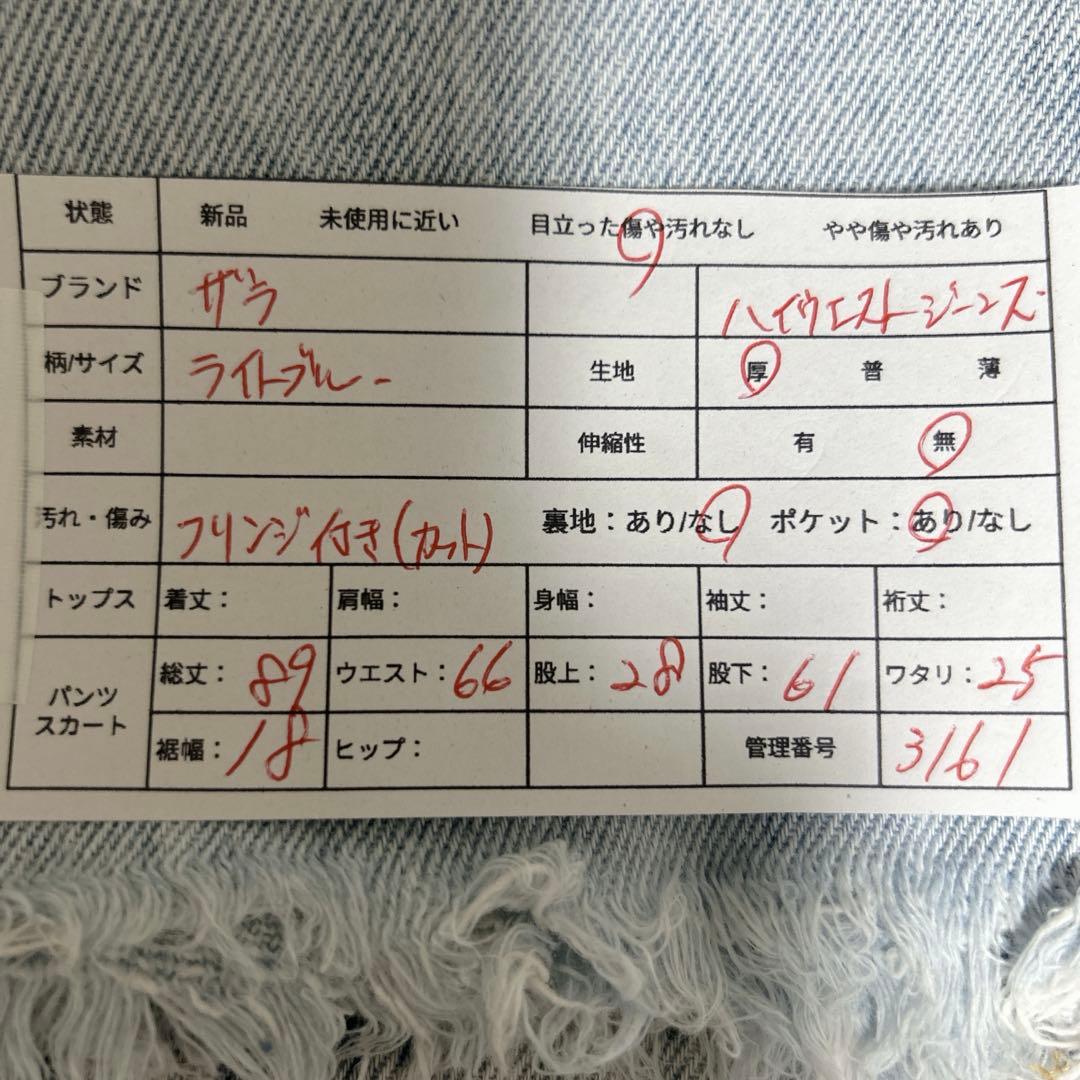 状態 新品 未使用に近い 目立った傷や汚れなし やや傷や汚れあり
ブランド ザラ ハイウエストジーンズ
柄/サイズ ライトブルー 生地 厚 普 薄
素材 伸縮性 有 無
汚れ・傷み フリンジ付き(カット) 裏地：あり/なし ポケット：あり/なし
トップス 着丈： 肩幅： 身幅： 袖丈： 裄丈：
パンツ スカート 総丈：89 ウエスト：66 股上：28 股下：61 ワタリ：25
裾幅：18 ヒップ： 管理番号 3161